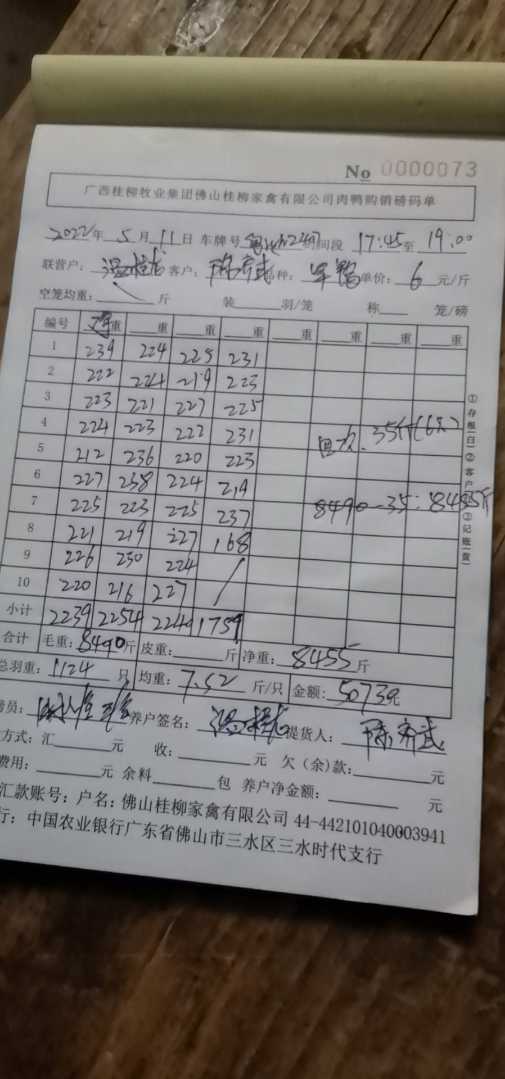 No 0000073
广西桂柳牧业集团佛山桂柳家禽有限公司肉鸭购销磅码单
2022年 5月 11日 车牌号 间段 17:45至 19:00
联营户: 客户: 种: 单价: 6 元/斤
空笼均重: 斤 装 羽/笼 称 笼/磅
编号 重 重 重 重 重 重 重 重
1 239 224 225 231
2 222 224 219 223
3 223 221 227 225
4 224 223 222 231
5 212 236 220 223
6 227 238 224 219
7 225 223 225 237
8 221 219 227 168
9 226 230 224
10 220 216 227
35斤(6只)
8490-35=8455斤
小计 2239 2254 2240 1759
合计 毛重: 8490斤 皮重: 斤 净重: 8455斤
总羽重: 1124 只 均重: 7.52 斤/只 金额: 50730元
磅员: 养户签名: 提货人: 陈齐武
方式: 汇 元 收: 元 欠(余)款: 元
费用: 元 余料 包 养户净金额: 元
汇款账号: 户名: 佛山桂柳家禽有限公司 44-442101040003941
行: 中国农业银行广东省佛山市三水区三水时代支行
①存根(白)②客户 ③记账(黄)